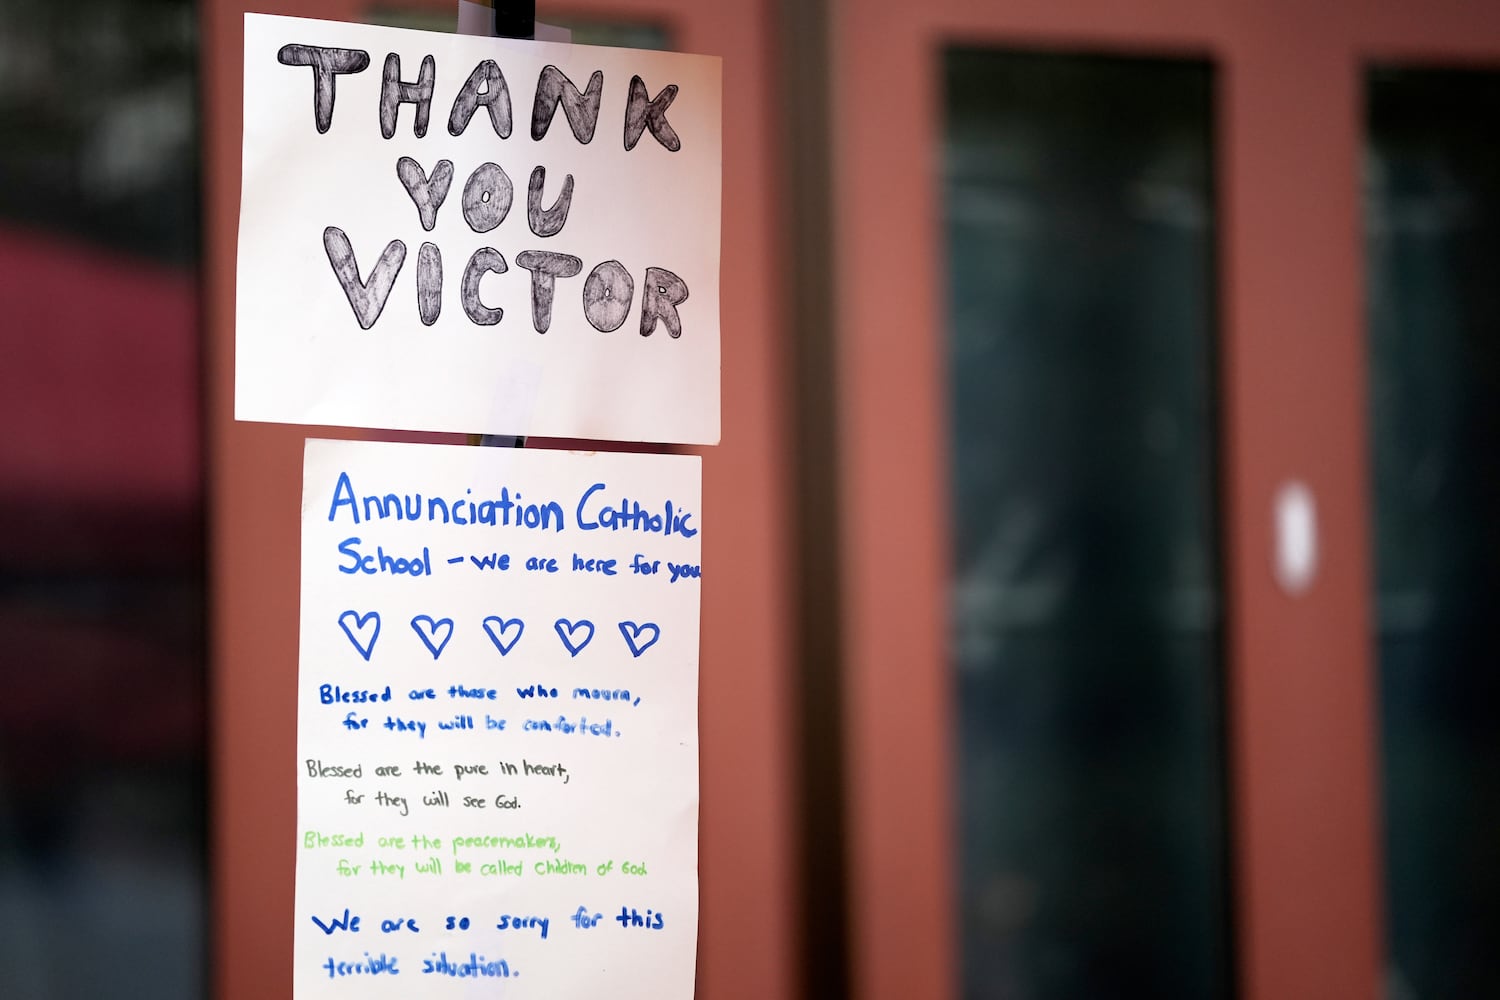 THANK
YOU
VICTOR
Annunciation Catholic
School - We are here for you
Blessed are those who mourn,
for they will be comforted.
Blessed are the pure in heart,
for they will see God.
Blessed are the peacemakers,
for they will be called children of God.
We are so sorry for this
terrible situation.